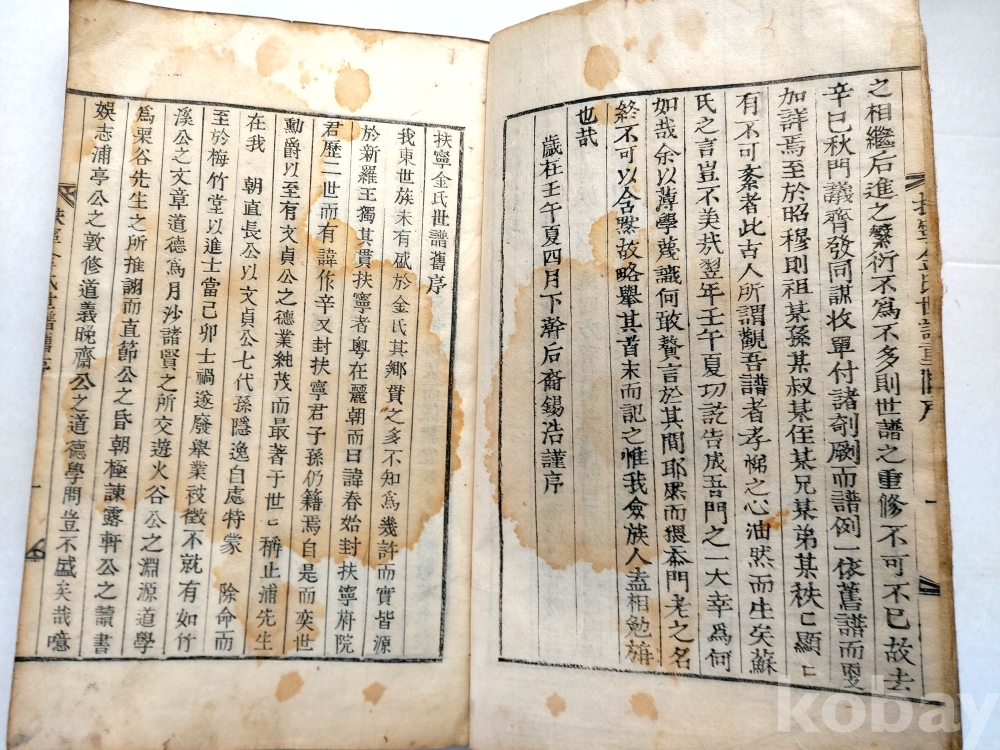 之相繼后進之繁衍不爲不多則世譜之重修不可不已故去
辛巳秋門議齊發同謀收單付諸剞劂而譜例一依舊譜而更
加詳焉至於昭穆則祖某孫某叔某侄某兄某弟某秩〻顯〻
有不可紊者此古人所謂觀吾譜者孝悌之心油然而生矣蘇
氏之言豈不美哉翌年壬午夏功訖告成吾門之一大幸爲何
如哉余以薄學蔑識何敢贅言於其間耶然而猥忝門老之名
終不可以含默故略擧其首末而記之惟我僉族人盍相勉旃
也哉
歲在壬午夏四月下澣后裔錫浩謹序
扶寧金氏世譜重修序
一
扶寧金氏世譜舊序
我東世族未有盛於金氏其鄕貫之多不知爲幾許而實皆源
於新羅王獨其貫扶寧者粤在麗朝而曰諱春始封扶寧府院
君歷二世而有諱作辛又封扶寧君子孫仍籍焉自是而奕世
勳爵以至有文貞公之德業純茂而最著于世〻稱止浦先生
在我 朝直長公以文貞公七代孫隱逸自處特蒙 除命而
至於梅竹堂以進士當己卯士禍遂廢擧業被徵不就有如竹
溪公之文章道德爲月沙諸賢之所交遊火谷公之淵源道學
爲栗谷先生之所推詡而直節公之昏朝極諫露軒公之讀書
娛志浦亭公之敦修道義晩齋公之道德學問豈不盛矣哉噫
扶寧金氏世譜舊序
一
kobay